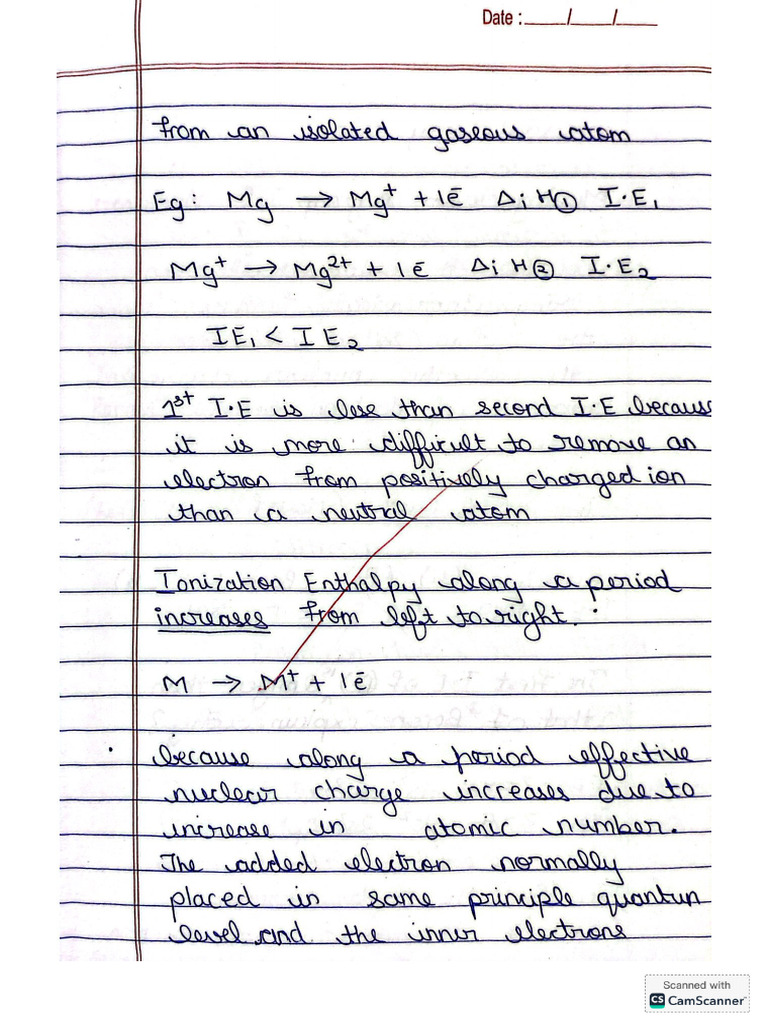 Date : ____/____/____
from an isolated gaseous atom
Eg: Mg → Mg⁺ + 1ē Δi H① I·E₁
Mg⁺ → Mg²⁺ + 1ē Δi H② I·E₂
IE₁ < IE₂
1st I·E is less than second I·E because
it is more difficult to remove an
electron from positively charged ion
than a neutral atom
Ionization Enthalpy along a period
increases from left to right. :
M → M⁺ + 1ē
because along a period effective
nuclear charge increases due to
increase in atomic number.
The added electron normally
placed in same principle quantun
level and the inner electrons
Scanned with
CS CamScanner